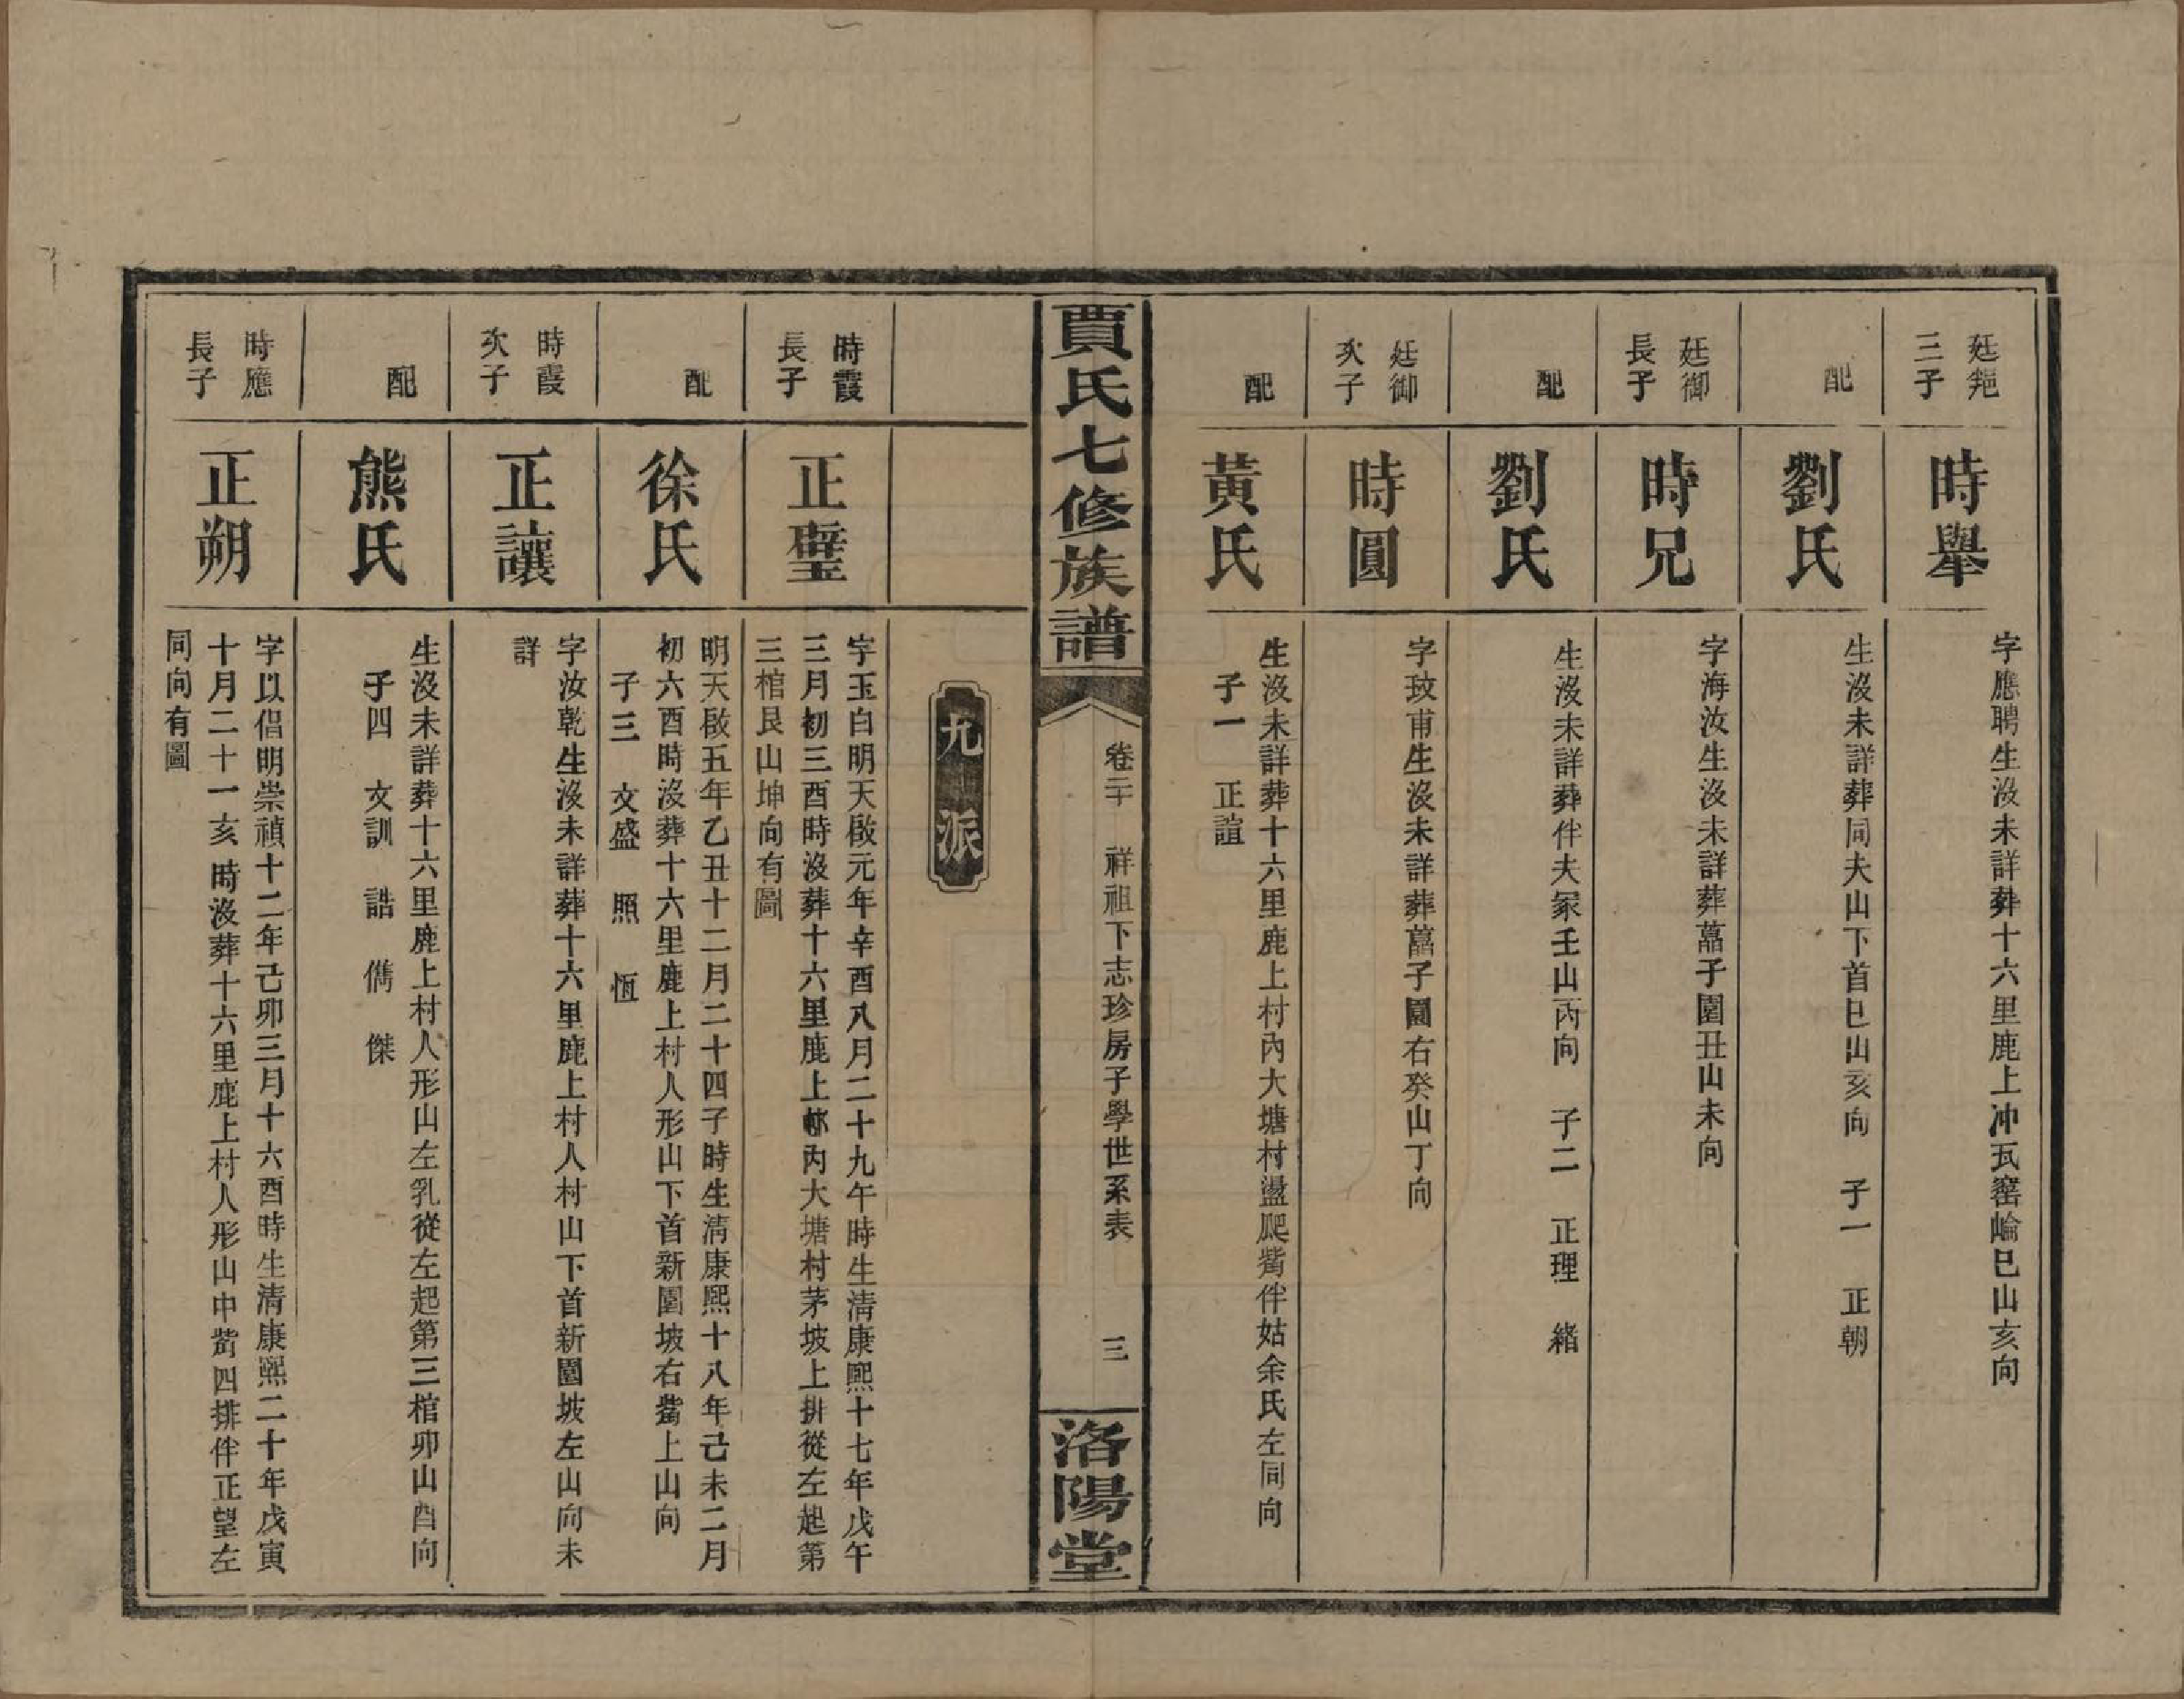 三子
時舉
字應聘生沒未詳葬十六里鹿上冲瓦窰崳巳山亥向
配
劉氏
生沒未詳葬同夫山下首巳山亥向 子一 正朝
廷御
長子
時兄
字海汝生沒未詳葬藠子園丑山未向
配
劉氏
生沒未詳葬伴夫冢壬山丙向 子二 正理 緒
廷御
次子
時圓
字玟甫生沒未詳葬藠子園右癸山丁向
配
黃氏
生沒未詳葬十六里鹿上村內大塘村盪爬觜伴姑余氏左同向
子一 正誼
賈氏七修族譜
卷二十 祥祖下志珍房子學世系表 三
洛陽堂
九派
時霞
長子
正璧
字玉白明天啟元年辛酉八月二十九午時生清康熙十七年戊午
三月初三酉時沒葬十六里鹿上邨內大塘村茅坡上排從左起第
三棺艮山坤向有圖
配
徐氏
明天啟五年乙丑十二月二十四子時生清康熙十八年己未二月
初六酉時沒葬十六里鹿上村人形山下首新園坡右觜上山向
子三 文盛 照 恆
時霞
次子
正讓
字汝乾生沒未詳葬十六里鹿上村人村山下首新園坡左山向未
詳
配
熊氏
生沒未詳葬十六里鹿上村人形山左乳從左起第三棺卯山酉向
子四 文訓 誥 儁 傑
時應
長子
正朔
字以倡明崇禎十二年己卯三月十六酉時生清康熙二十年戊寅
十月二十一亥時沒葬十六里鹿上村人形山中觜四排伴正望左
同向有圖